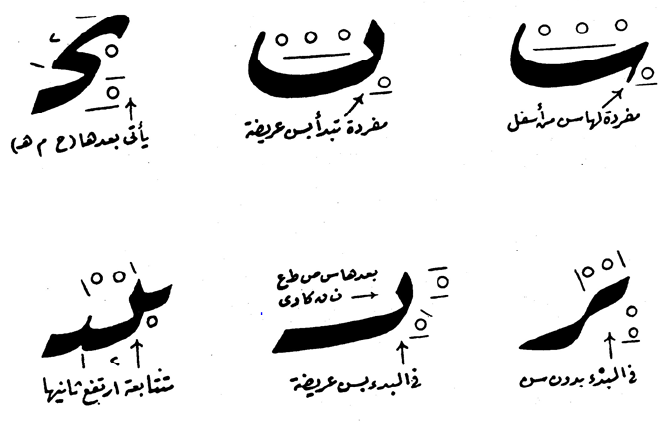 مفردة لها سن من أسفل
مفردة تبدأ بسن عريضة
يأتى بعدها (ح م هـ)
فى البدء بدون سن
بعدها س ص ط ع
فى البدء بسن عريضة
متتابعة ارتفع ثانيها